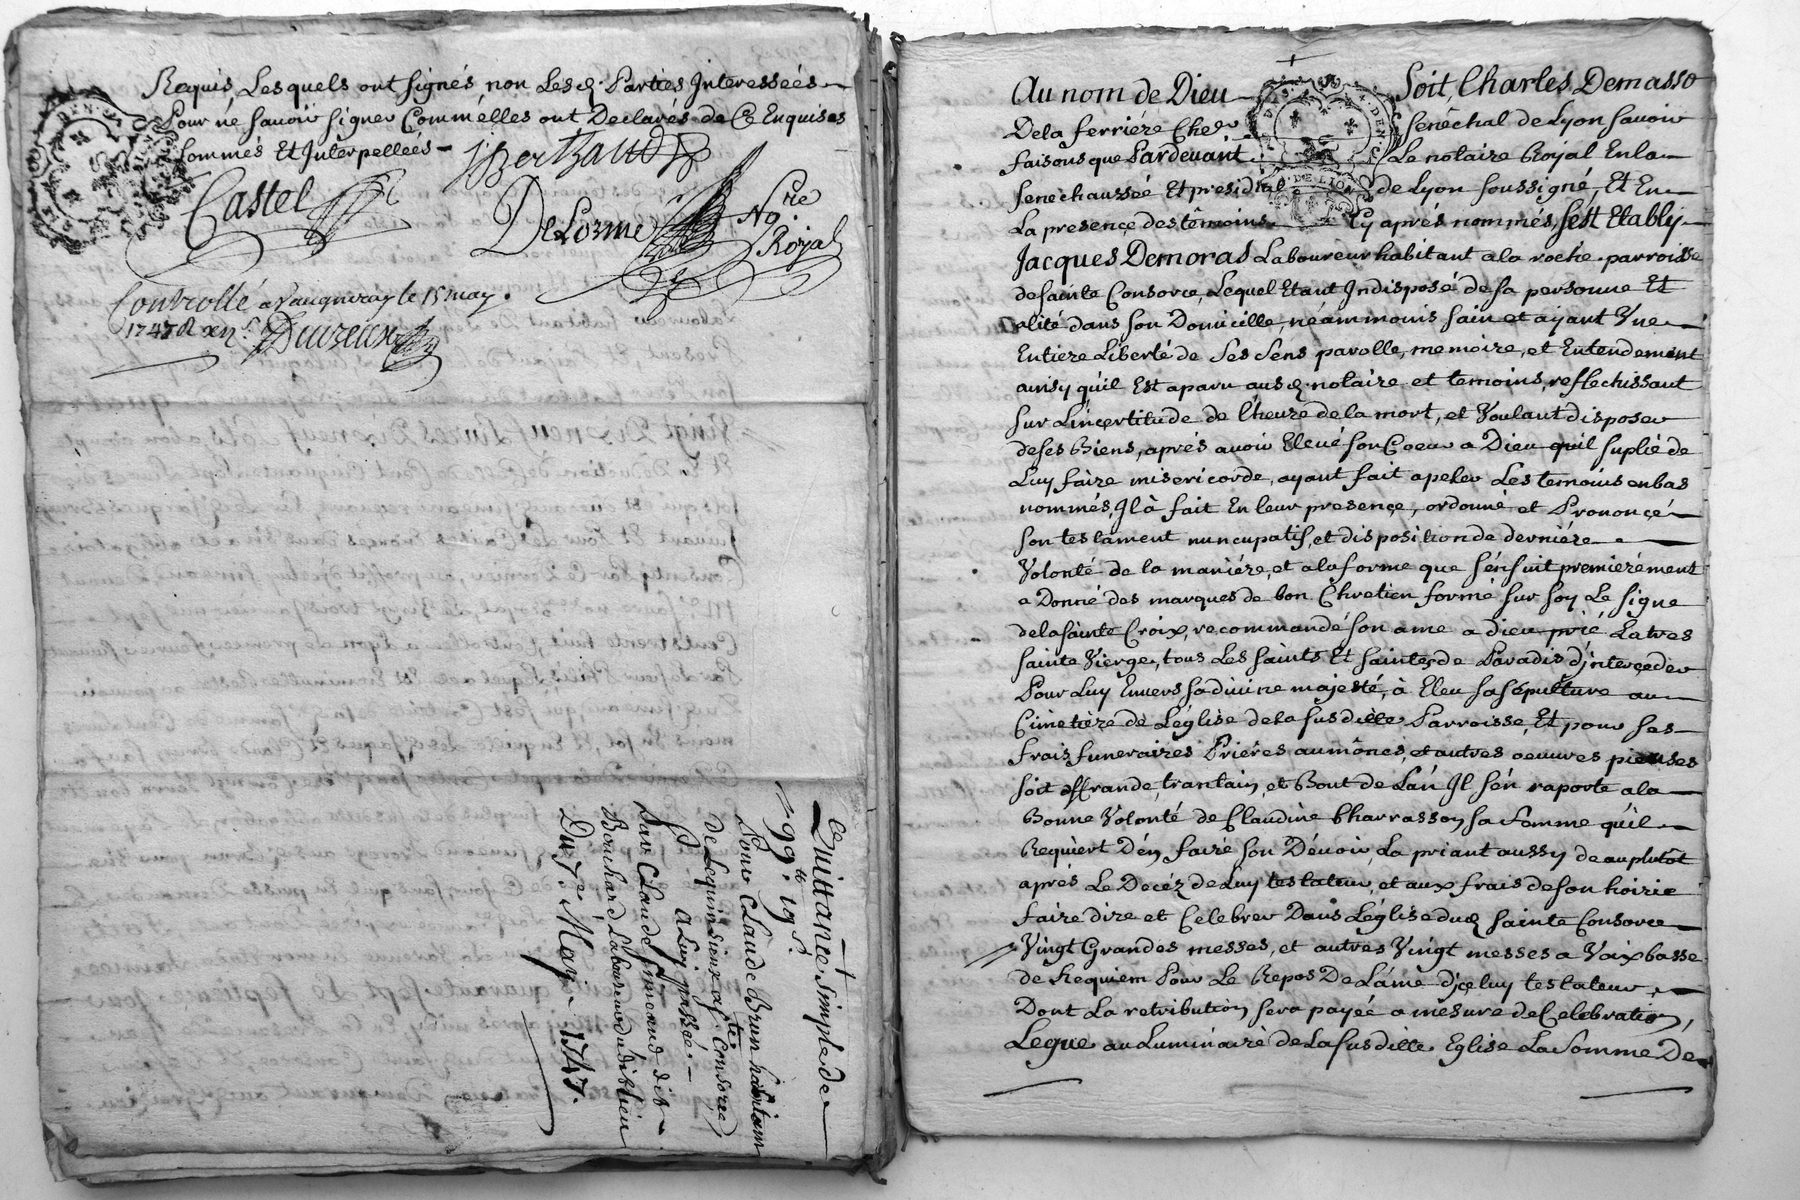 Requis, Lesquels ont signés non Lesd. Parties Interesseés
Pour né savoir signer Comm'elles ont Declarés de Ce Enquises
sommés Et Interpelleés
J Bertrand
Castel
DeLorme No.re Royal
Controllé a Vaugneray le 15 may
1747 R
ce
Quittance simple de
99.tt 19 s.
Pour Claude Brun habitant
de Lequin sieux a S.te Consorce
A Luy passeé
Par Claude simeand dit
Bouchard Laboureur dudit lieu
Du 7.e May 1747.
Au nom de Dieu Soit, Charles Demasso
Dela ferriére Cher. Senéchal de Lyon savoir
faisons que Pardevant Le notaire Royal En la
senechausseé Et presidial de Lyon soussigné, Et En
La presence des témoins Cy aprés nommés, s'est Etably
Jacques Demoras Laboureur habitant a la roche parroisse
de sainte Consorce, Lequel Etant Indisposé de sa personne Et
alité dans son Domicille, néammoins sain et ayant Vne
Entiere Liberté de Ses Sens parolle, memoire, et Entendement
ainsy qu'il Est aparu ausd. notaire et temoins, reflechissant
sur L'incertitude de l'heure de la mort, et Voulant disposer
de ses Biens, aprés avoir Elevé son Coeur a Dieu qu'il suplié de
Luy faire misericorde, ayant fait apeler Les temoins enbas
nommés, Il à fait En leur presence, ordonné et Prononcé
son testament nuncupatif, et disposition de derniére
Volonté de la maniére, et a la forme que s'ensuit premiérement
a Donné des marques de bon Chretien formé sur soy Le signe
de la sainte Croix, recommandé son ame a dieu prié La tres
sainte Vierge, tous Les saints Et saintes de Paradis d'interceder
Pour Luy Envers sa divine majesté, à Eleu sa sépulture au
Cimetière de L'église de la susditte Parroisse, Et pour ses
frais funeraires Prières aumônes, et autres oeuvres pieuses
soit offrande, trantain, et Bout de L'an Il s'en raporte a la
Bonne Volonté de Claudine Charrasson sa femme qu'il
Requiert D'en faire son Dévoir, La priant aussy de au plutôt
aprés Le Decéz de Luy testateur, et aux frais de son hoirie
faire dire et Celebrer Dans L'église dud. sainte Consorce
Vingt Grandes messes, et autres Vingt messes a Voix basse
de Requiem Pour Le Repos De L'ame d'jceluy testateur,
Dont La retribution sera payéé a mesure de Celebration,
Legue au Luminaire de La susditte Eglise La Somme De